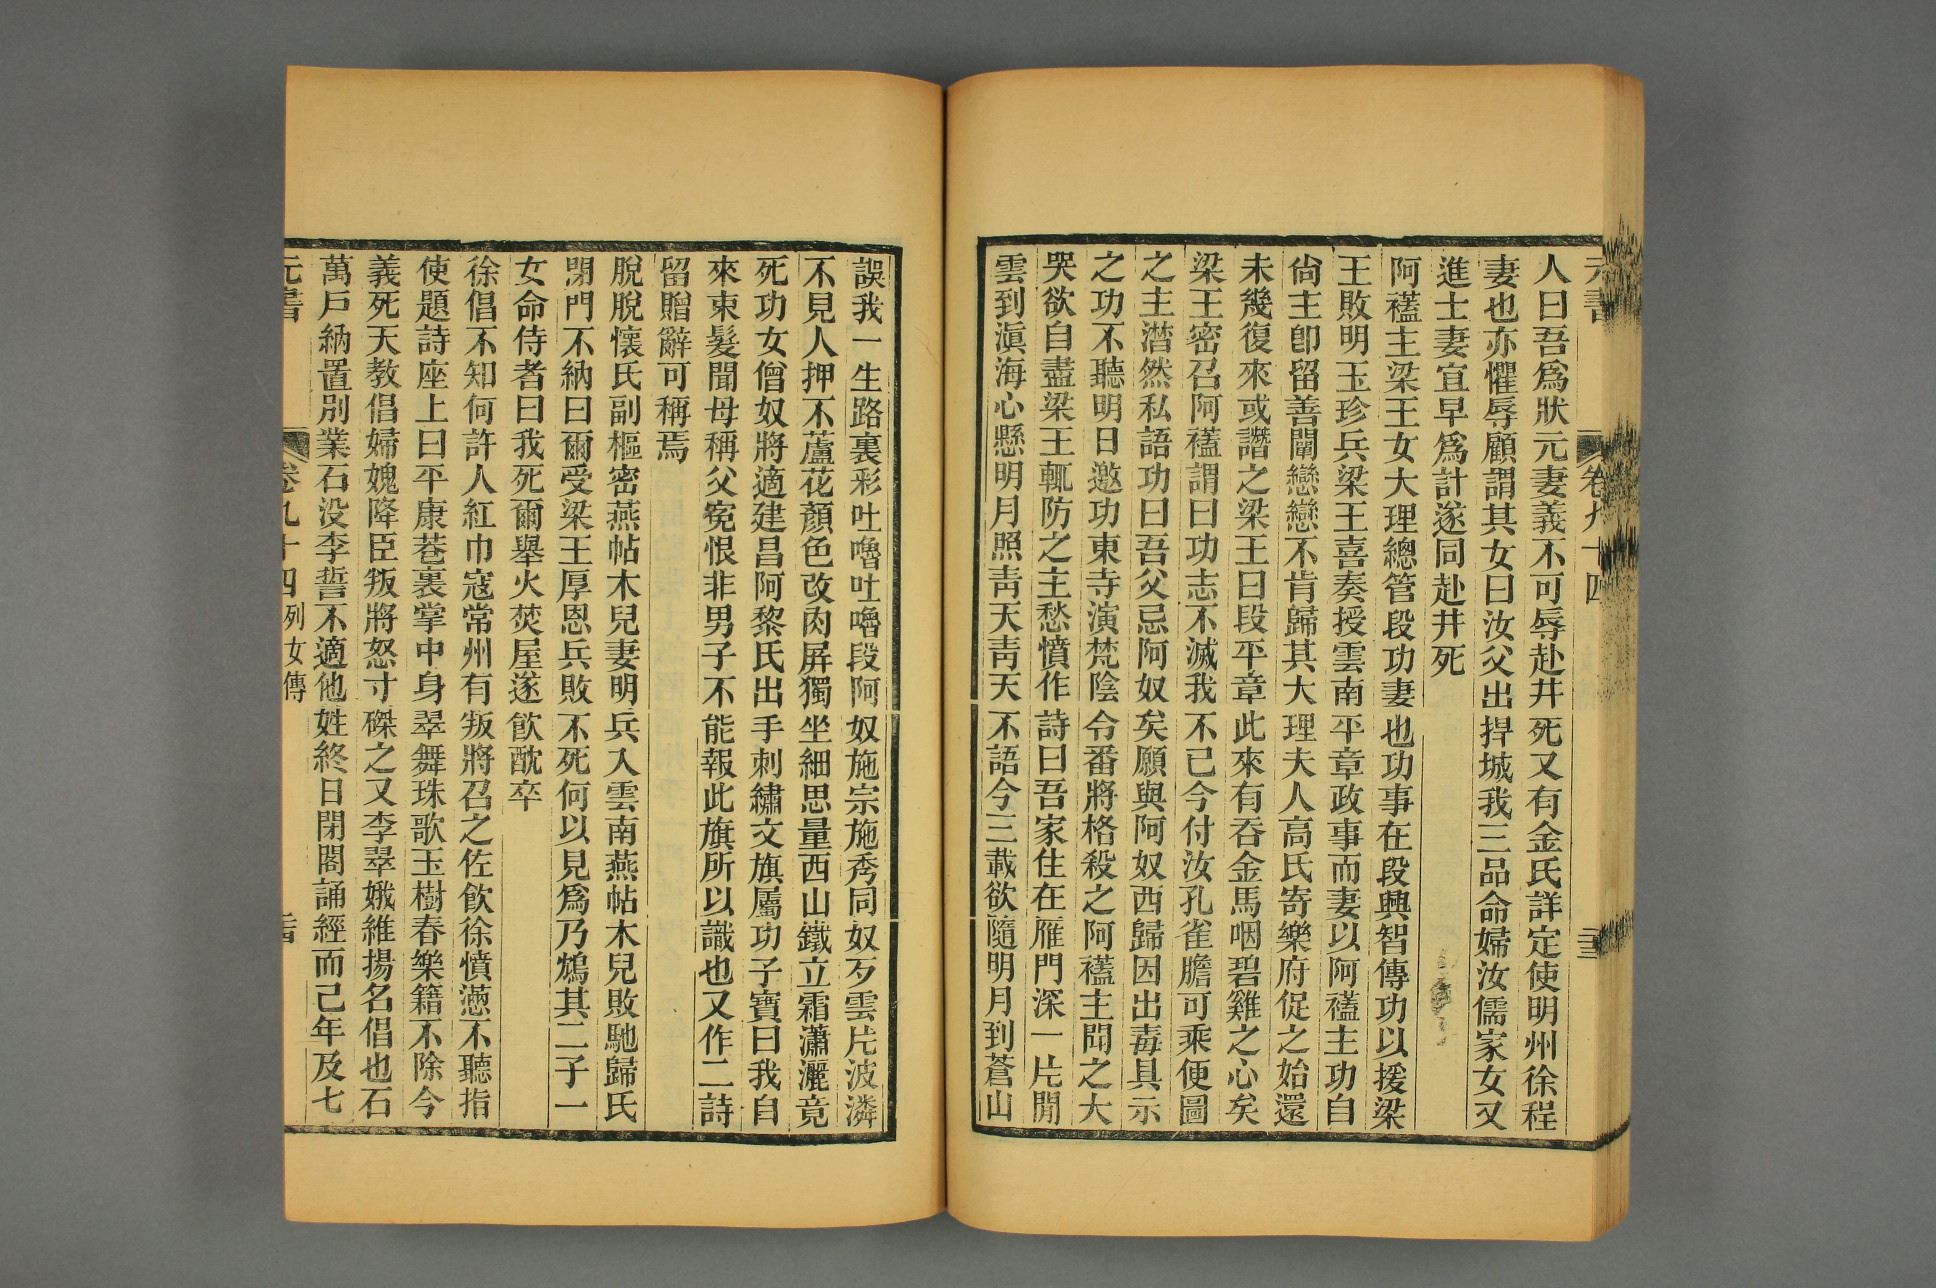 元書
卷九十四
三
人曰吾爲狀元妻義不可辱赴井死又有金氏詳定使明州徐程
妻也亦懼辱顧謂其女曰汝父出捍城我三品命婦汝儒家女又
進士妻宜早爲計遂同赴井死
阿𧝞主梁王女大理總管段功妻也功事在段興智傳功以援梁
王敗明玉珍兵梁王喜奏授雲南平章政事而妻以阿𧝞主功自
尙主卽留善闡戀戀不肯歸其大理夫人高氏寄樂府促之始還
未幾復來或譖之梁王曰段平章此來有吞金馬咽碧雞之心矣
梁王密召阿𧝞謂曰功志不滅我不已今付汝孔雀膽可乘便圖
之主潸然私語功曰吾父忌阿奴矣願與阿奴西歸因出毒具示
之功不聽明日邀功東寺演梵陰令番將格殺之阿𧝞主聞之大
哭欲自盡梁王輒防之主愁憤作詩曰吾家住在雁門深一片閒
雲到滇海心懸明月照靑天靑天不語今三載欲隨明月到蒼山
誤我一生路裏彩吐嚕吐嚕段阿奴施宗施秀同奴歹雲片波潾
不見人押不蘆花顏色改肉屏獨坐細思量西山鐵立霜瀟灑竟
死功女僧奴將適建昌阿黎氏出手刺繡文旗屬功子寶曰我自
來束髮聞母稱父寃恨非男子不能報此旗所以識也又作二詩
留贈辭可稱焉
脫脫懷氏副樞密燕帖木兒妻明兵入雲南燕帖木兒敗馳歸氏
閉門不納曰爾受梁王厚恩兵敗不死何以見爲乃鴆其二子一
女命侍者曰我死爾舉火焚屋遂飮酖卒
徐倡不知何許人紅巾寇常州有叛將召之佐飮徐憤懣不聽指
使題詩座上曰平康巷裏掌中身翠舞珠歌玉樹春樂籍不除今
義死天教倡婦媿降臣叛將怒寸磔之又李翠娥維揚名倡也石
萬戶納置別業石没李誓不適他姓終日閉閣誦經而已年及七
元書
卷九十四
列女傳